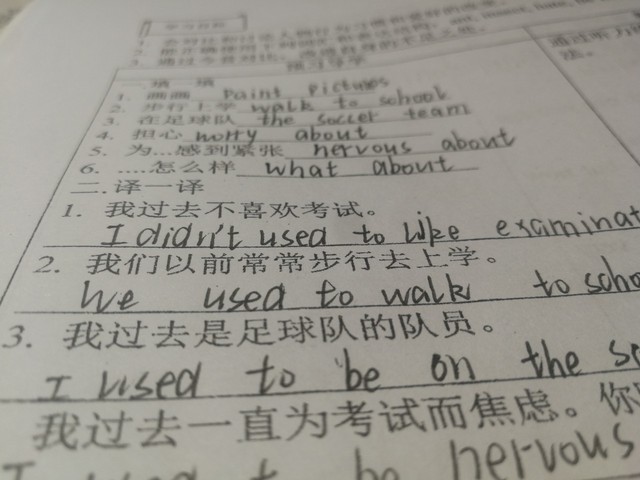 学习目标
预习导学
一. 填一填
1. 画画 paint pictures
2. 步行上学 walk to school
3. 在足球队 the soccer team
4. 担心 worry about
5. 为...感到紧张 nervous about
6. .....怎么样 what about
二. 译一译
1. 我过去不喜欢考试。
I didn't used to like examinat
2. 我们以前常常步行去上学。
We used to walk to scho
3. 我过去是足球队的队员。
I used to be on the so
我过去一直为考试而焦虑。你
I used t be nervous